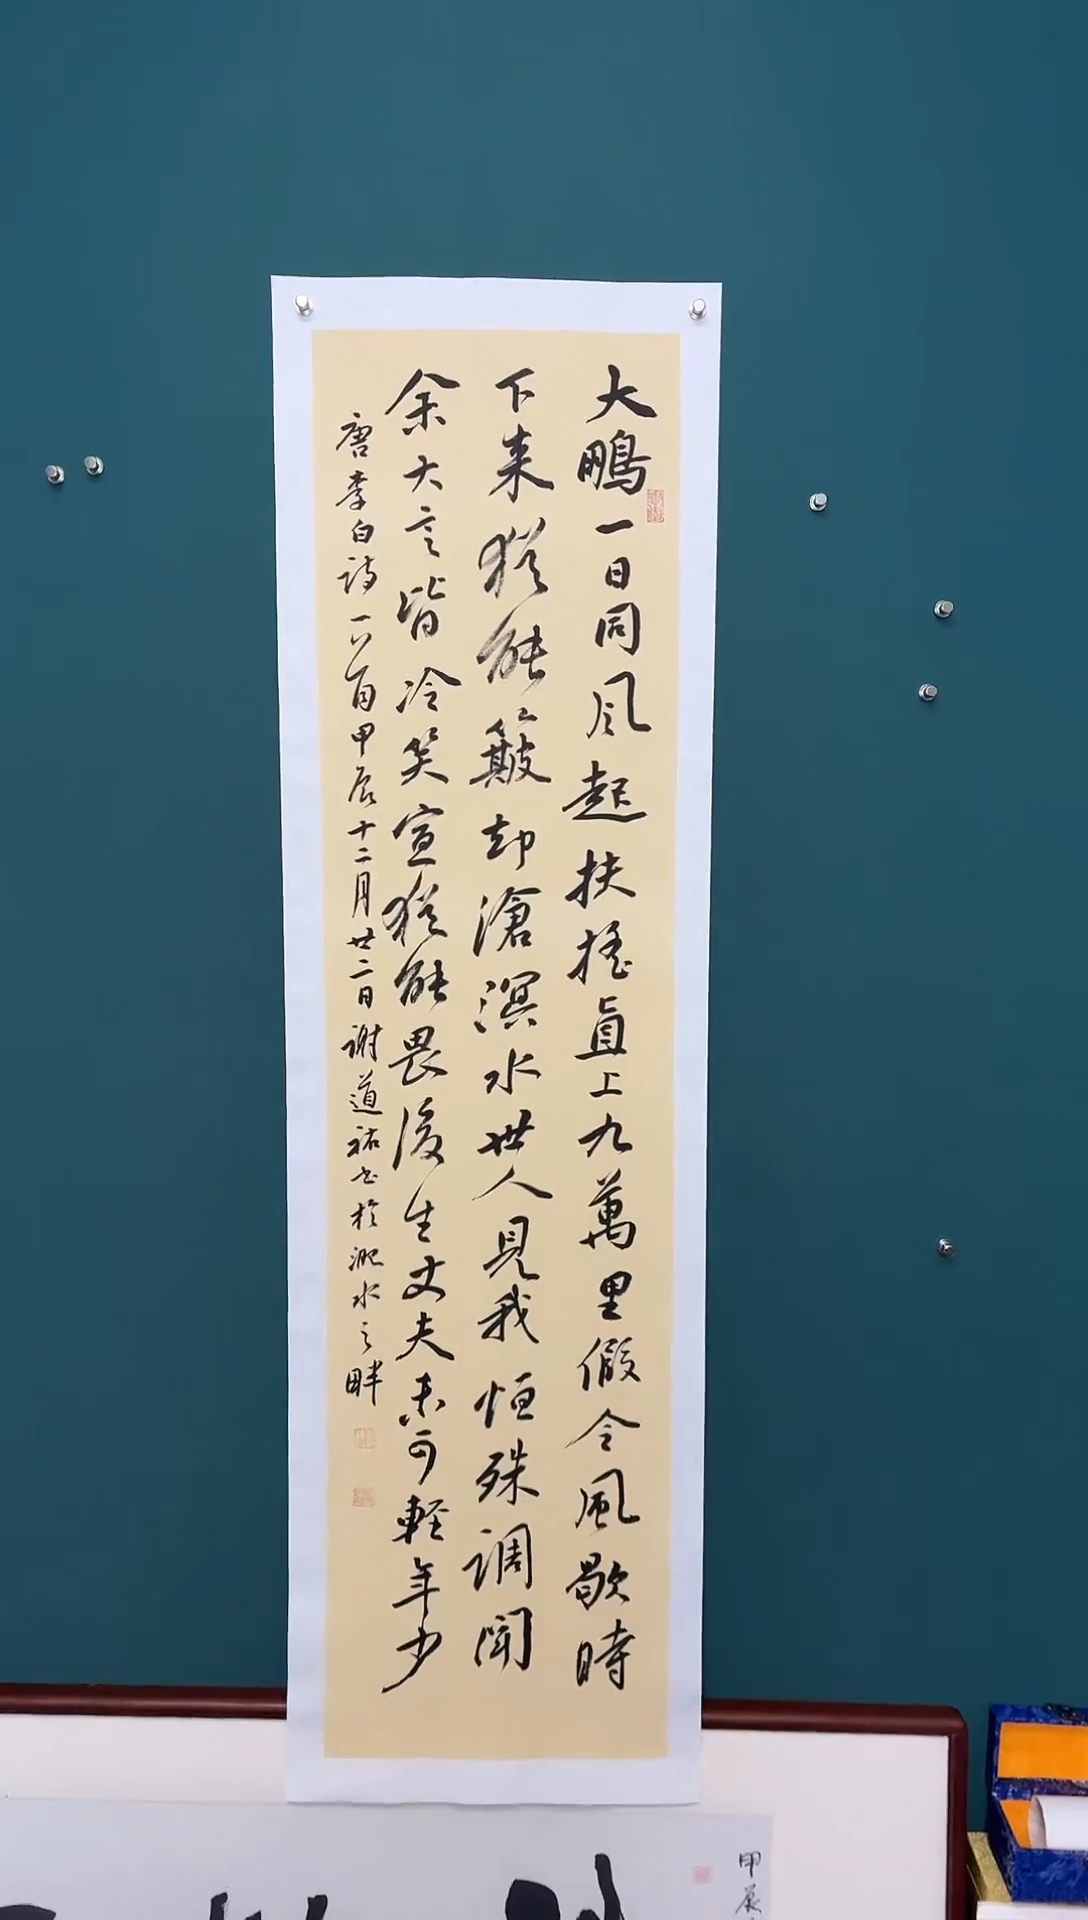 大鵬一日同風起扶搖直上九萬里假令風歇時
下來猶能簸却滄溟水世人見我恒殊調聞
余大言皆冷笑宣猶能畏後生丈夫未可輕年少
唐李白詩一首甲辰十二月廿二日謝道祐书於淝水之畔
甲辰